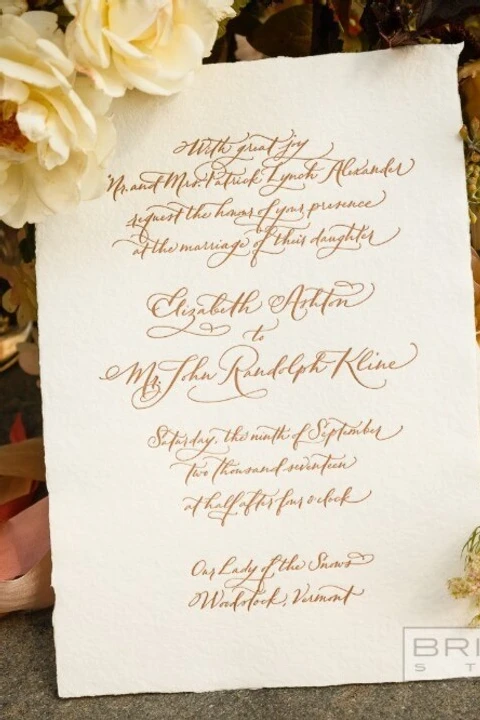 With great joy
Mr. and Mrs. Patrick Lynch Alexander
request the honor of your presence
at the marriage of their daughter
Elizabeth Ashton
to
Mr. John Randolph Kline
Saturday, the ninth of September
two thousand seventeen
at half after four o'clock
Our Lady of the Snows
Woodstock, Vermont
BRI
S T